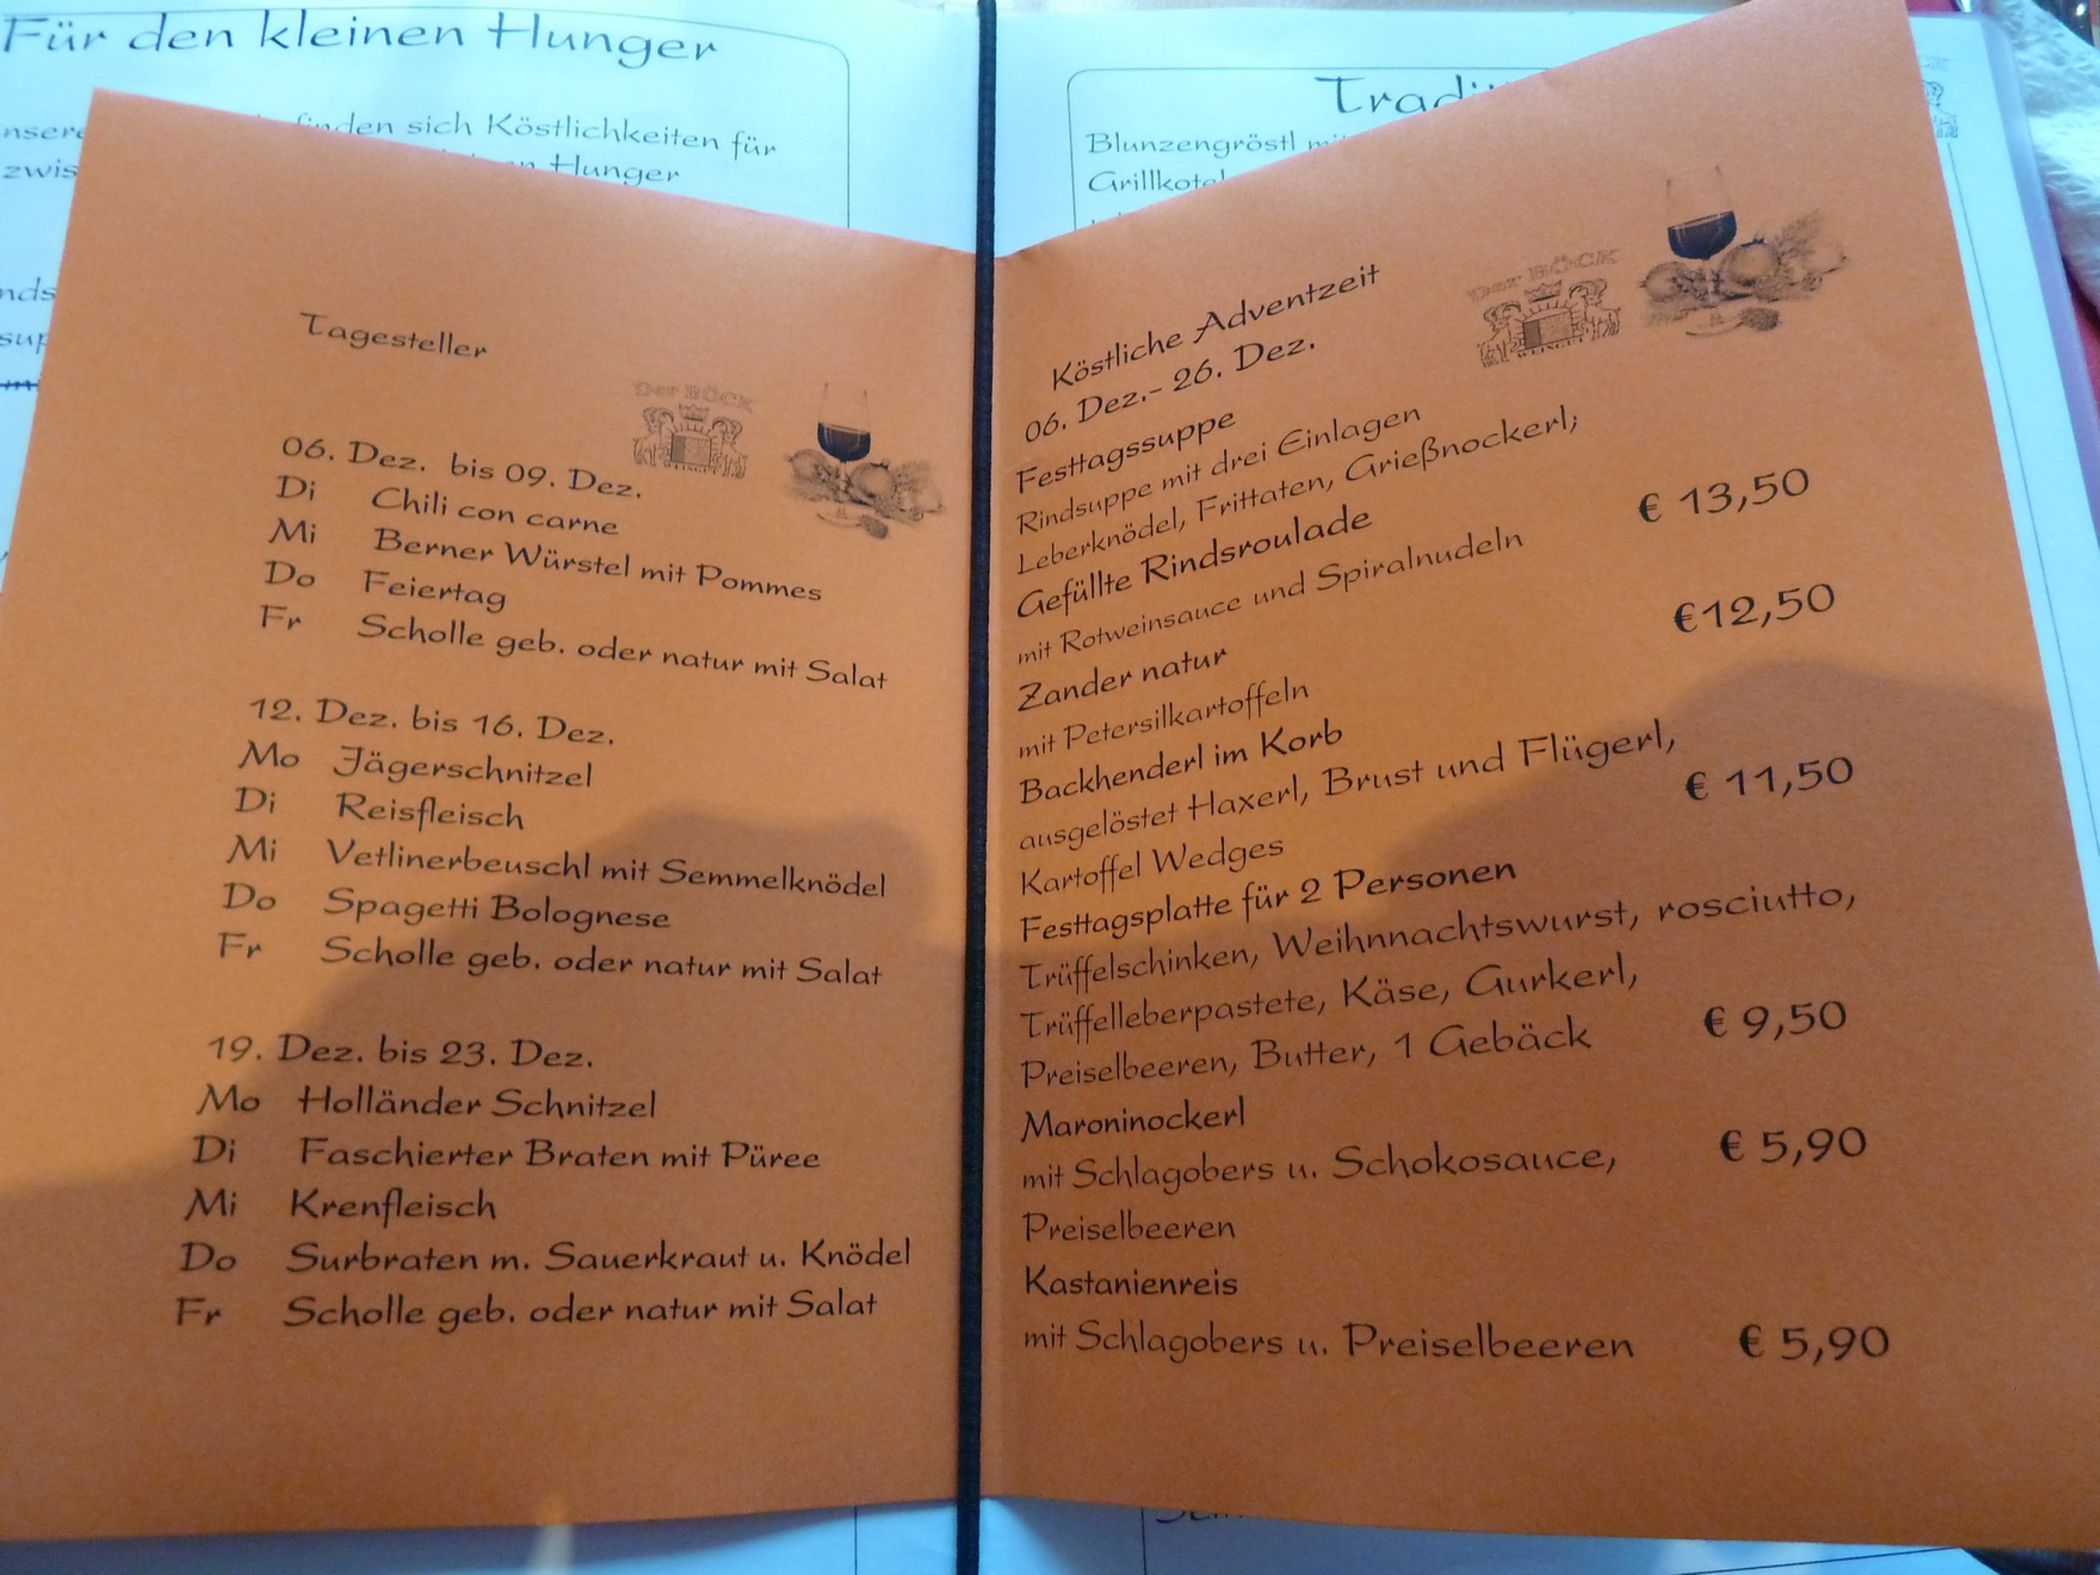 Für den kleinen Hunger
finden sich Köstlichkeiten für
Hunger
Tagesteller
Der BÖCK
WEINGUT
06. Dez. bis 09. Dez.
Di Chili con carne
Mi Berner Würstel mit Pommes
Do Feiertag
Fr Scholle geb. oder natur mit Salat
12. Dez. bis 16. Dez.
Mo Jägerschnitzel
Di Reisfleisch
Mi Vetlinerbeuschl mit Semmelknödel
Do Spagetti Bolognese
Fr Scholle geb. oder natur mit Salat
19. Dez. bis 23. Dez.
Mo Holländer Schnitzel
Di Faschierter Braten mit Püree
Mi Krenfleisch
Do Surbraten m. Sauerkraut u. Knödel
Fr Scholle geb. oder natur mit Salat
Blunzengröstl
Der BÖCK
WEINGUT
Köstliche Adventzeit
06. Dez.- 26. Dez.
Festtagssuppe
Rindsuppe mit drei Einlagen
Leberknödel, Frittaten, Grießnockerl;
Gefüllte Rindsroulade € 13,50
mit Rotweinsauce und Spiralnudeln
Zander natur €12,50
mit Petersilkartoffeln
Backhenderl im Korb
ausgelöstet Haxerl, Brust und Flügerl,
Kartoffel Wedges € 11,50
Festtagsplatte für 2 Personen
Trüffelschinken, Weihnnachtswurst, rosciutto,
Trüffelleberpastete, Käse, Gurkerl,
Preiselbeeren, Butter, 1 Gebäck € 9,50
Maroninockerl
mit Schlagobers u. Schokosauce, € 5,90
Preiselbeeren
Kastanienreis
mit Schlagobers u. Preiselbeeren € 5,90